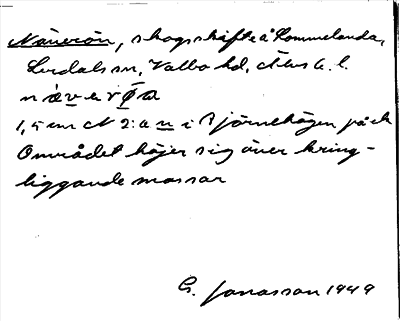 Näverön, skogsskifte å Sommelanda,
Lerdals sn, Valbo hd, Älvsb. l.
nävərØa
1,5 mm N 2:a n i Björnehögen på ek
Området höjer sig över kring-
liggande mossar
G. Jonasson 1949